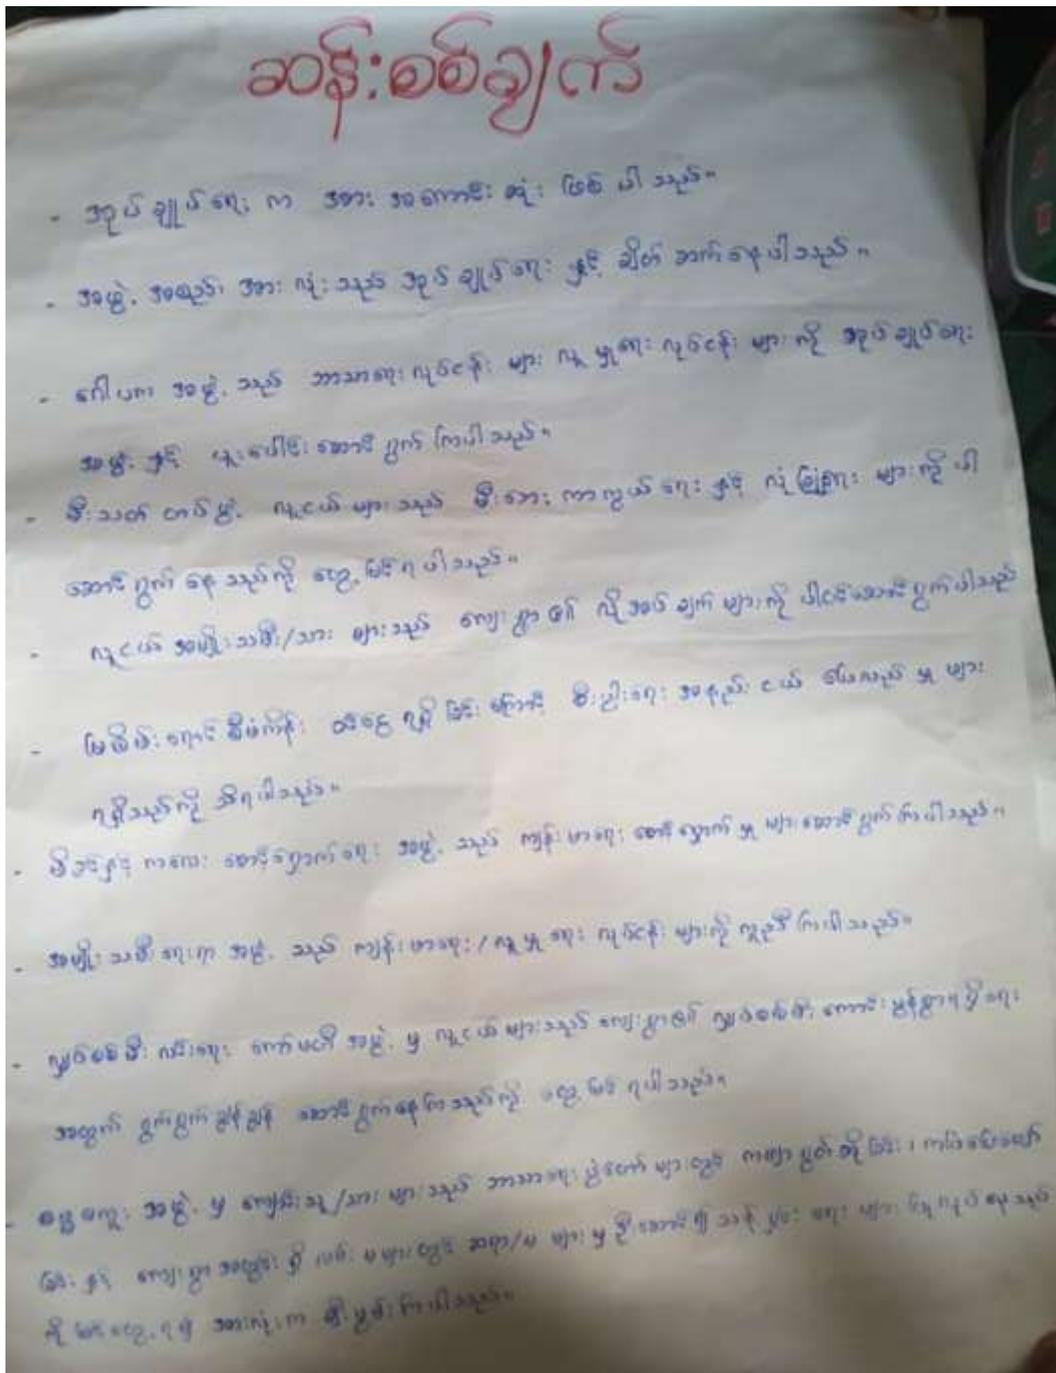 ဆန်းစစ်ချက်
- အုပ်ချုပ်ရေး က အား အကောင်း ဆုံး ဖြစ် ပါ သည်။
- အဖွဲ့ အစည်း အား လုံး သည် အုပ် ချုပ်ရေး နှင့် ချိတ် ဆက် နေ ပါ သည်။
- ဂေါပက အဖွဲ့ သည် ဘာသာရေး လုပ်ငန်း များ လူမှုရေး လုပ်ငန်း များ ကို အုပ်ချုပ်ရေး
အဖွဲ့ နှင့် ပူးပေါင်း ဆောင် ရွက် ကြပါ သည်။
- မီးသတ် တပ်ဖွဲ့ လူငယ် များ သည် မီးဘေး ကာကွယ် ရေး နှင့် လုံခြုံရေး များ ကို ပါ
ဆောင် ရွက် နေ သည်ကို တွေ့ မြင် ရ ပါ သည်။
- လူငယ် အမျိုး သမီး/သား များသည် ကျေး ရွာ ၏ လို အပ် ချက် များ ကို ပါဝင်ဆောင် ရွက် ပါသည်
- မြစိမ်း ရောင် စီမံကိန်း ငွေ ရရှိ ခြင်း ကြောင့် စီးပွားရေး အနည်း ငယ် ပြေလည် မှု များ
ရရှိသည်ကို သိရပါသည်။
- မိခင်နှင့် ကလေး စောင့်ရှောက်ရေး အဖွဲ့ သည် ကျန်းမာရေး စောင့်ရှောက် မှု များ ဆောင် ရွက် ကြပါသည်။
- အမျိုး သမီး ရေးရာ အဖွဲ့ သည် ကျန်းမာရေး / လူမှု ရေး လုပ်ငန်း များကို ကူညီ ကြပါသည်။
- လျှပ်စစ် မီး လင်းရေး ကော်မတီ အဖွဲ့ မှ လူငယ် များသည် ကျေးရွာ၏ လျှပ်စစ်မီး ကောင်းမွန်စွာရရှိရေး
အတွက် ရွက်ရွက် ချွန်ချွန် ဆောင် ရွက် နေကြ သည်ကို တွေ့ မြင် ရပါသည်။
- ဓမ္မစကူး အဖွဲ့ မှ ကျောင်းသူ /သား များ သည် ဘာသာရေး ပွဲတော် များတွင် ကဗျာ ရွတ်ဆို ခြင်း ၊ ကပြဖျော်ဖြေ
ခြင်း နှင့် ကျေးရွာ အတွင်း ရှိ လမ်းမများတွင် ဆရာ/မ များ မှ ဦးဆောင်၍ သန့်ရှင်း ရေး များ ပြုလုပ် နေသည်
ကို မြင်တွေ့ ရ၍ အားလုံး က ချီးမွမ်း ကြပါသည်။